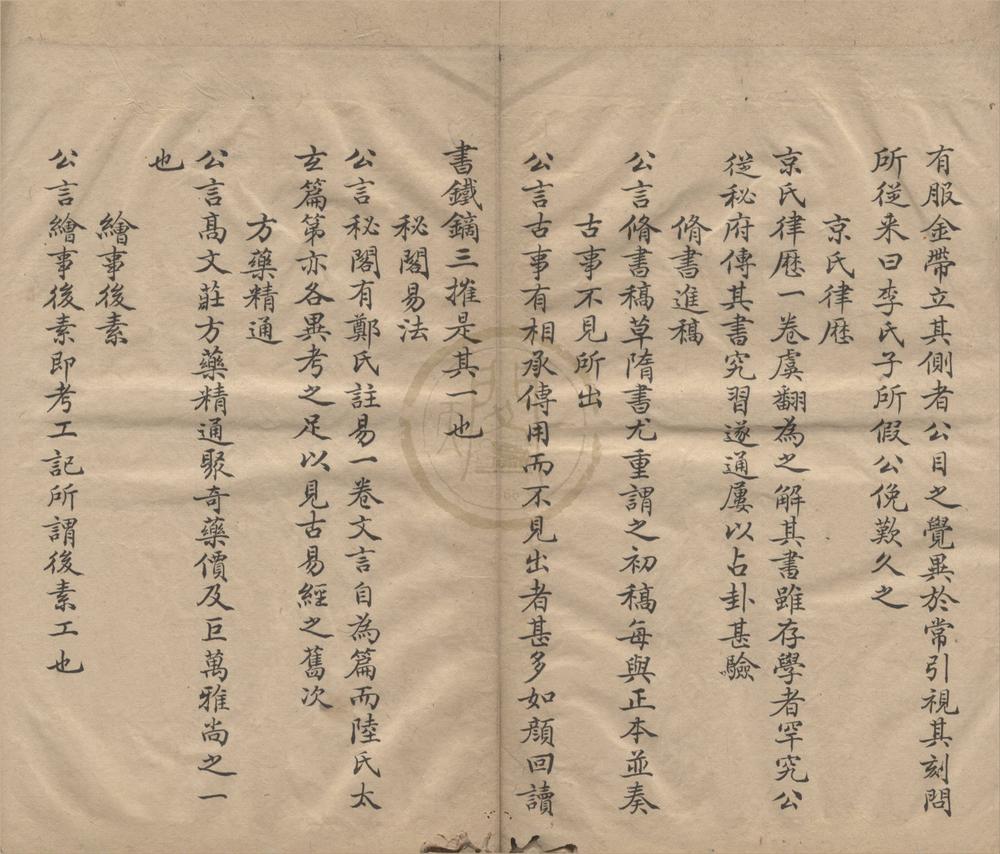 有服金帶立其側者公目之覺異於常引視其刻問
所從来曰李氏子所假公俛歎久之
京氏律歴
京氏律歴一卷虞翻為之解其書雖存學者罕究公
從秘府傳其書究習遂通屢以占卦甚驗
脩書進稿
公言脩書稿草隋書尤重謂之初稿每與正本並奏
古事不見所出
公言古事有相承傳用而不見出者甚多如顔回讀
書鐵鏑三摧是其一也
秘閣易法
公言秘閣有鄭氏註易一卷文言自為篇而陸氏太
玄篇第亦各異考之足以見古易經之舊次
方藥精通
公言髙文莊方藥精通聚奇藥價及巨萬雅尚之一
也
繪事後素
公言繪事後素即考工記所謂後素工也